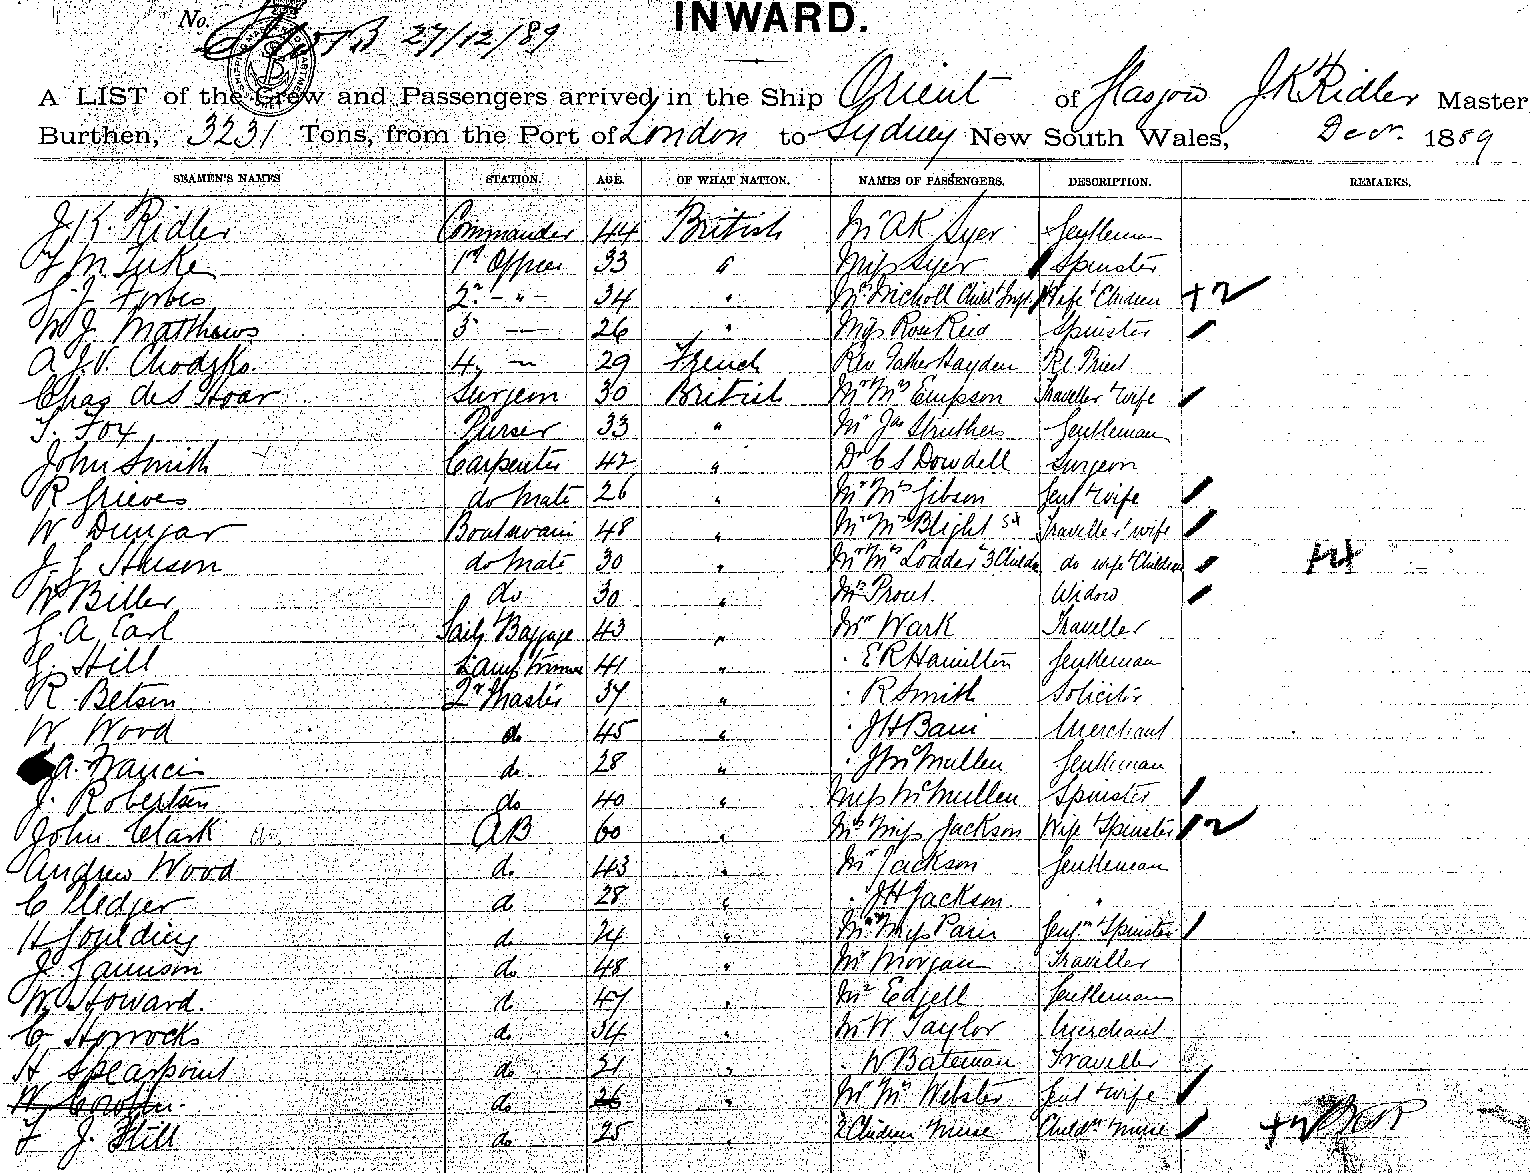 No.
27/12/89
INWARD.
A LIST of the Crew and Passengers arrived in the Ship Orient of Glasgow J.K. Ridler Master
Burthen, 3231 Tons, from the Port of London to Sydney New South Wales, Decr. 1889
SEAMEN'S NAMES STATION. AGE. OF WHAT NATION. NAMES OF PASSENGERS. DESCRIPTION. REMARKS.
J.K. Ridler Commander 44 British Mr A K Syer Gentleman
1st Officer 33 " Miss Syer Spinster
G.J. Forbes 2nd - " - 34 " Mrs Nicholl Wife & Children + 2
W J. Matthews 3 — 26 " Miss Spinster
A.J.V. Chodzko. 4 — 29 French Rev Father Hayden RC Priest
Chas de S Hoar Surgeon 30 British Mr & Mrs Empson Traveller & Wife
T. Fox Purser 33 " Mr Jas Struthers Gentleman
John Smith Carpenter 42 " Dr C S Dowdell Surgeon
R Grieves do Mate 26 " Mr & Mrs Gibson Gent & Wife
W Dungar Boatswain 48 " Mr & Mrs Blight Traveller & wife
J. do Mate 30 " Mr & Mrs Loader & 3 Childn do wife & Children
W Biller do 30 " Mrs Prout. Widow
G. A. Earl Sails & Baggage 43 " Mr Wark Traveller
G. Hill Lamp trimmer 41 " " E R Hamilton Gentleman
R. Betson Qr Master 37 " " R Smith Solicitor
W Wood do 45 " " J H Bain Merchant
A. Francis do 28 " " J McMullen Gentleman
J. Robertson do 40 " Miss McMullen Spinster
John Clark AB 60 " Mrs & Miss Jackson Wife & Spinster 2
Andrew Wood do 43 " Mr Jackson Gentleman
C Pledger do 28 " " J H Jackson "
H Goulding do 24 " Mr & Miss Paris Gentn & Spinster
J. Jamison do 48 " Mr Morgan Traveller
W. Howard. do 47 " Mr Edgell Gentleman
C Horrocks do 34 " Mr W Taylor Merchant
H Spearpoint do 21 " " W Bateman Traveller
W do 26 " Mr & Mrs Webster Gent & Wife
F J. Hill do 25 " 2 Children & Nurse Childn & Nurse + 2